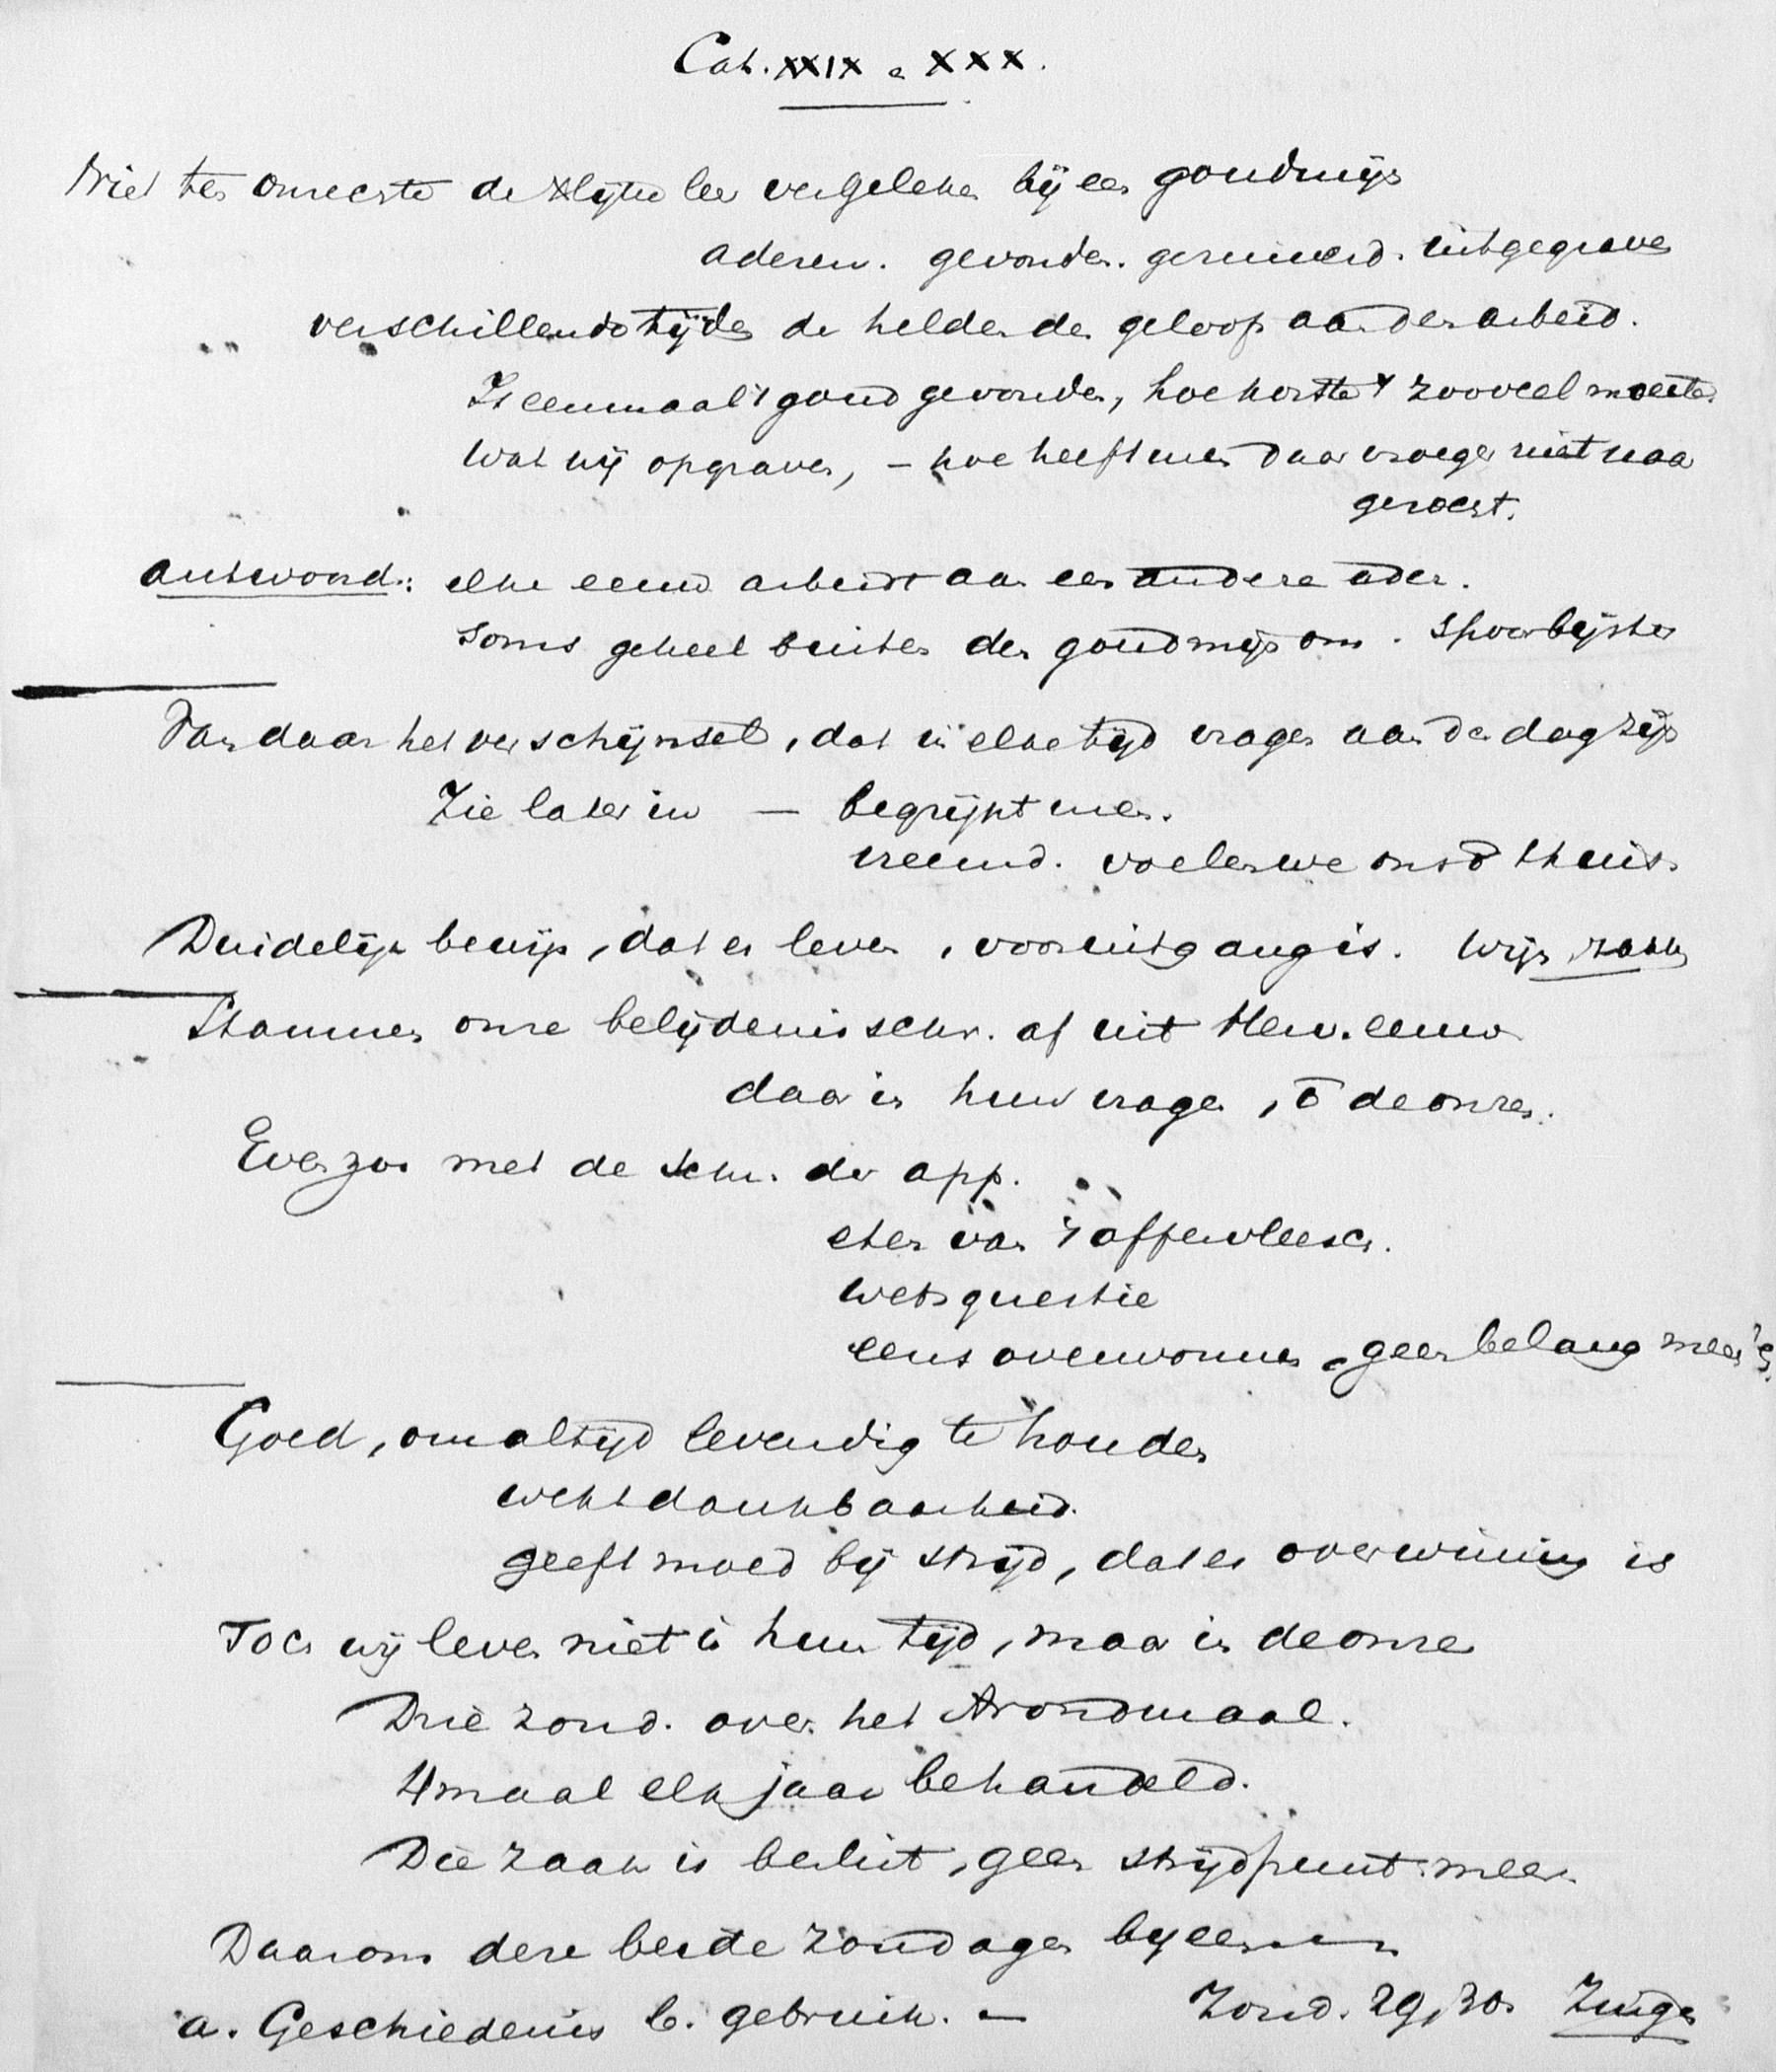 Cat. XXIX & XXX.
Niet ten onrechte de Xlijke leer vergeleken bij een goudmijn
aderen. gevonden. gezuiverd. uitgegraven
verschillende tijden de helden des geloofs aan den arbeid.
Is eenmaal 't goud gevonden, hoe kostte 't zooveel moeite.
Wat wij opgraven, – hoe heeft men daar vroeger niet naar
gezocht.
Antwoord: elke eeuw arbeidt aan een andere ader.
Soms geheel buiten de goudmijn om. Spoorbijster
Van daar het verschijnsel, dat in elke tijd vragen aan de dag zijn
Zie later in — begrijpt men.
vreemd. voelen we ons ō thuis.
Duidelijk bewijs, dat er leven, vooruitgang is. Wijn zakken
Stammen onze belijdenisschr. af uit Herv. eeuw
daar in hun vragen, ō de onzen.
Even zoo met de schr. der app.
eten van 't offervleesch.
wetsquestie
eens overwonnen geen belang meer
Goed, om altijd levendig te houden
wekt dankbaarheid.
geeft moed bij strijd, dat er overwinning is
Toch wij leven niet in hun tijd, maar in de onze
Drie Zond. over het Avondmaal.
4 maal elk jaar behandeld.
Die zaak is beslist, geen strijdpunt meer
Daarom deze beide Zondagen bijeen
a. Geschiedenis b. gebruik. – Zond. 29, 30. Zingen